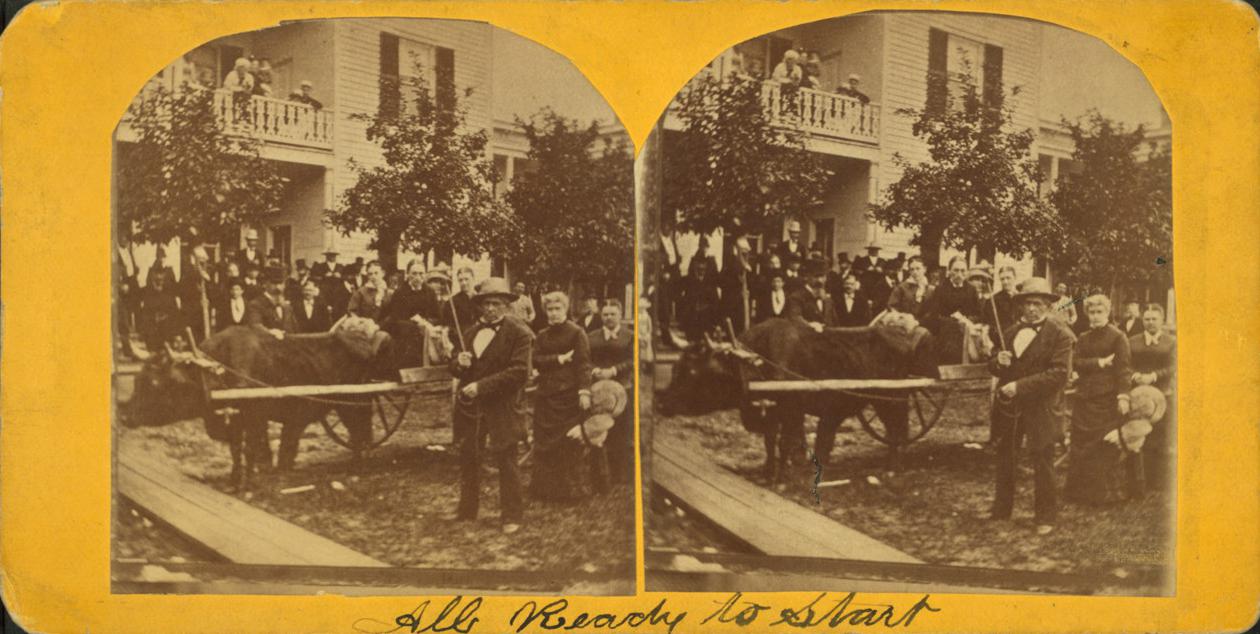 All Ready to Start